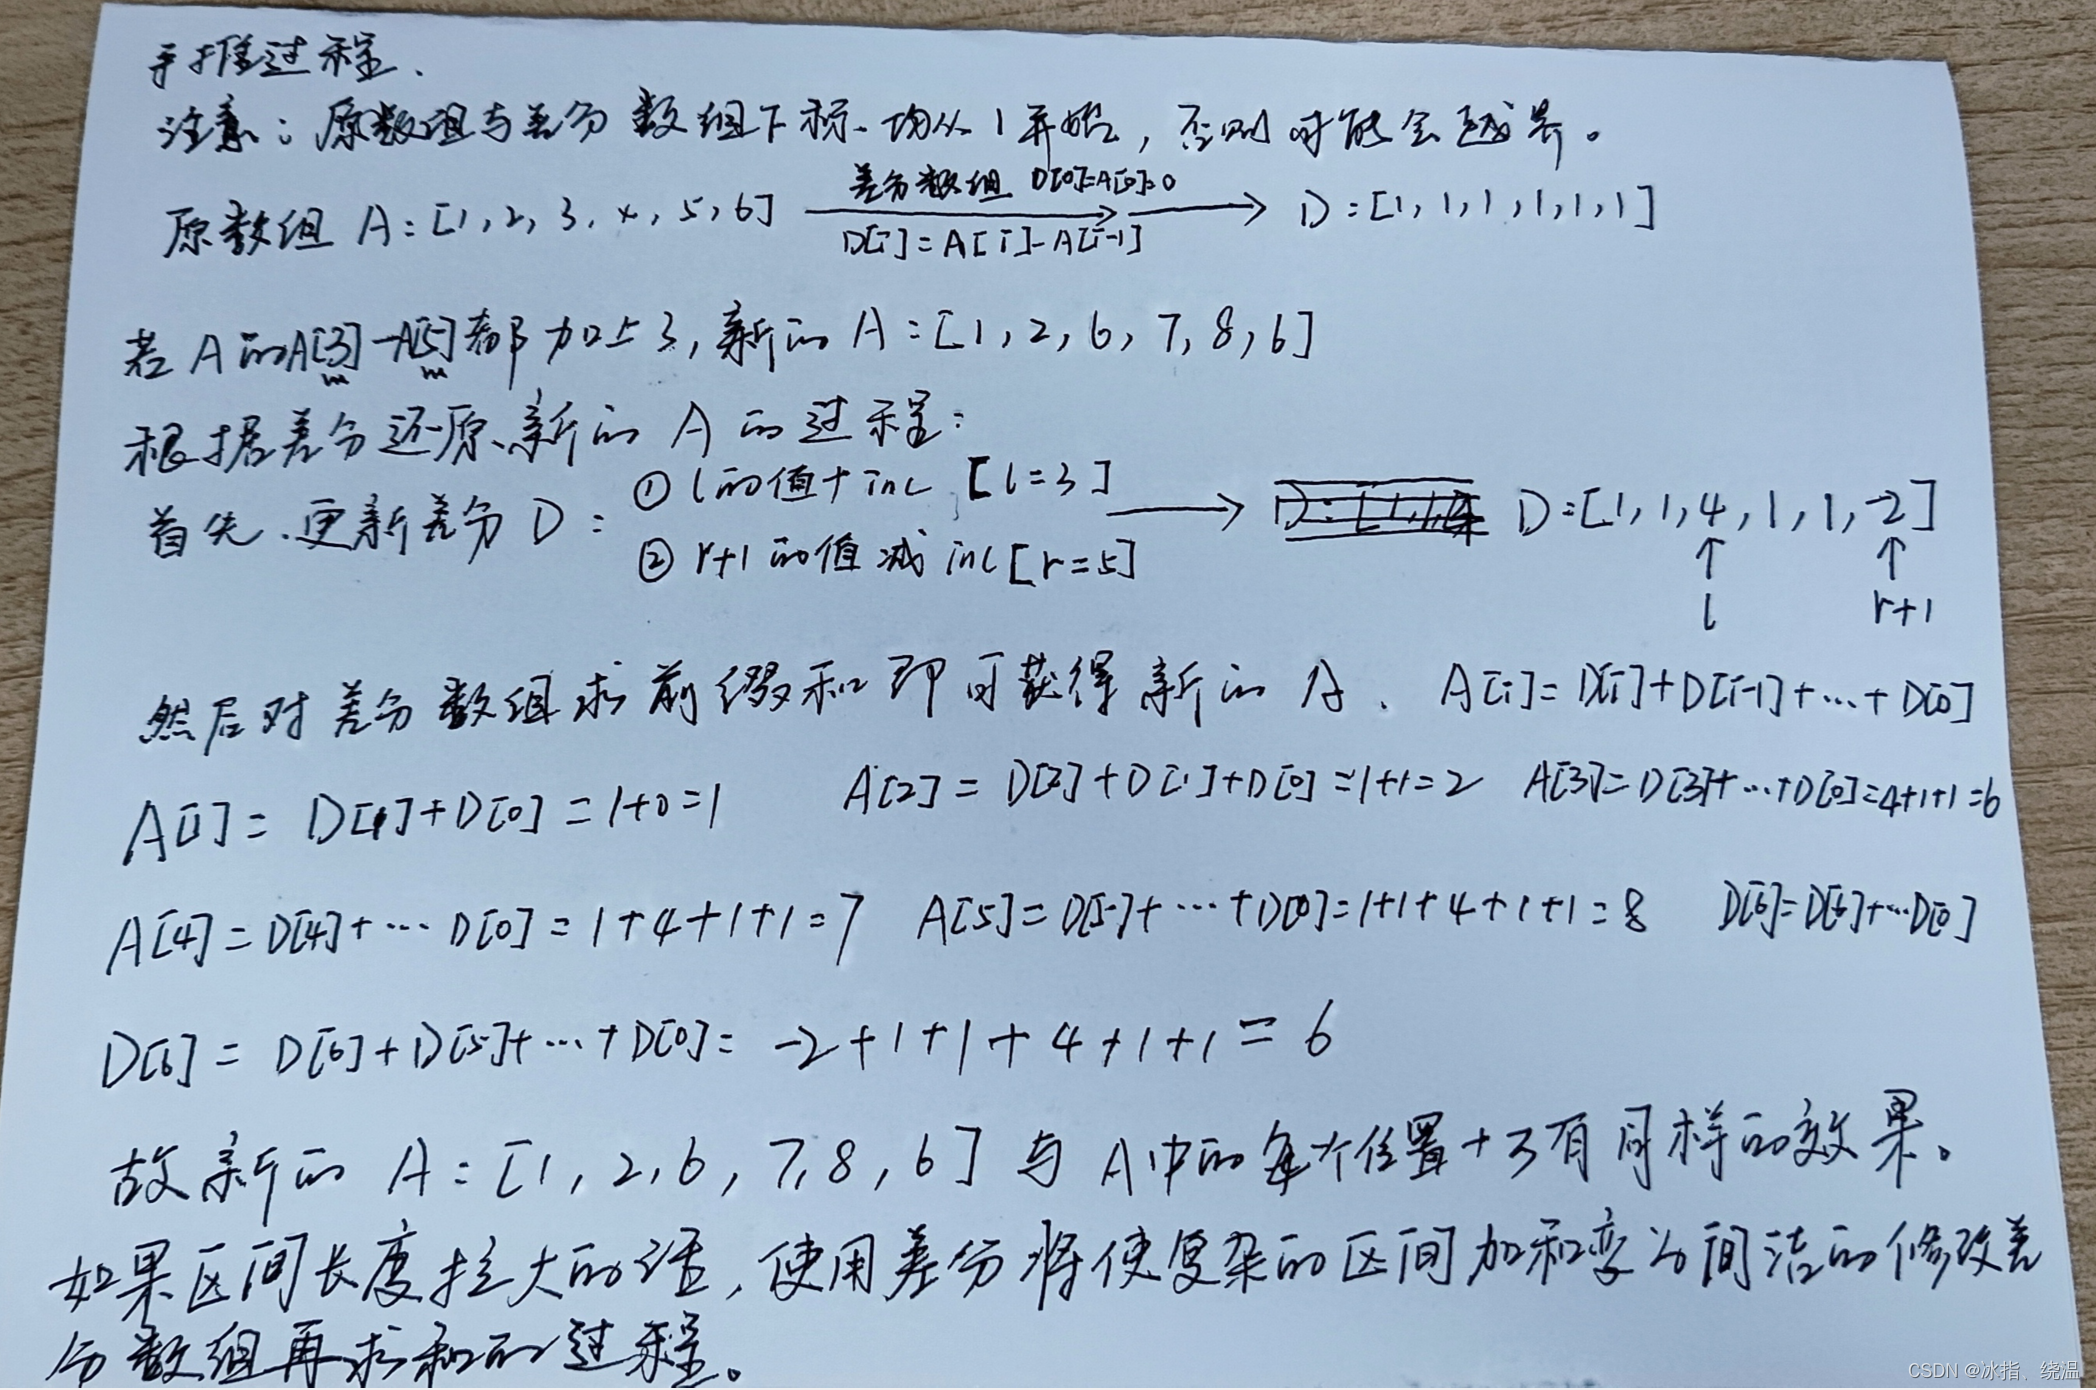 手推过程.
注意：原数组与差分数组下标均从1开始，否则可能会越界。
差分数组 D[0]=A[0]=0
原数组 A:[1,2,3,4,5,6] → D:[1,1,1,1,1,1]
D[i]=A[i]-A[i-1]
若A的A[3]-A[5]都加上3,新的A:[1,2,6,7,8,6]
根据差分还原新的A的过程：
首先.更新差分D：
① l的值+inc [l=3]
② r+1的值减inc[r=5]
→ D:[1,1,4,1,1,-2]
↑ ↑
l r+1
然后对差分数组求前缀和即可获得新的A. A[i]=D[i]+D[i-1]+…+D[0]
A[1]=D[1]+D[0]=1+0=1 A[2]=D[2]+D[1]+D[0]=1+1=2 A[3]=D[3]+…+D[0]=4+1+1=6
A[4]=D[4]+…D[0]=1+4+1+1=7 A[5]=D[5]+…+D[0]=1+1+4+1+1=8 D[6]=D[6]+…D[0]
D[6]=D[6]+D[5]+…+D[0]=-2+1+1+4+1+1=6
故新的A:[1,2,6,7,8,6]与A中的每个位置+3有同样的效果。
如果区间长度拉大的话,使用差分将使复杂的区间加和变为间洁的修改差
分数组再求和的过程。
CSDN @冰指、绕温